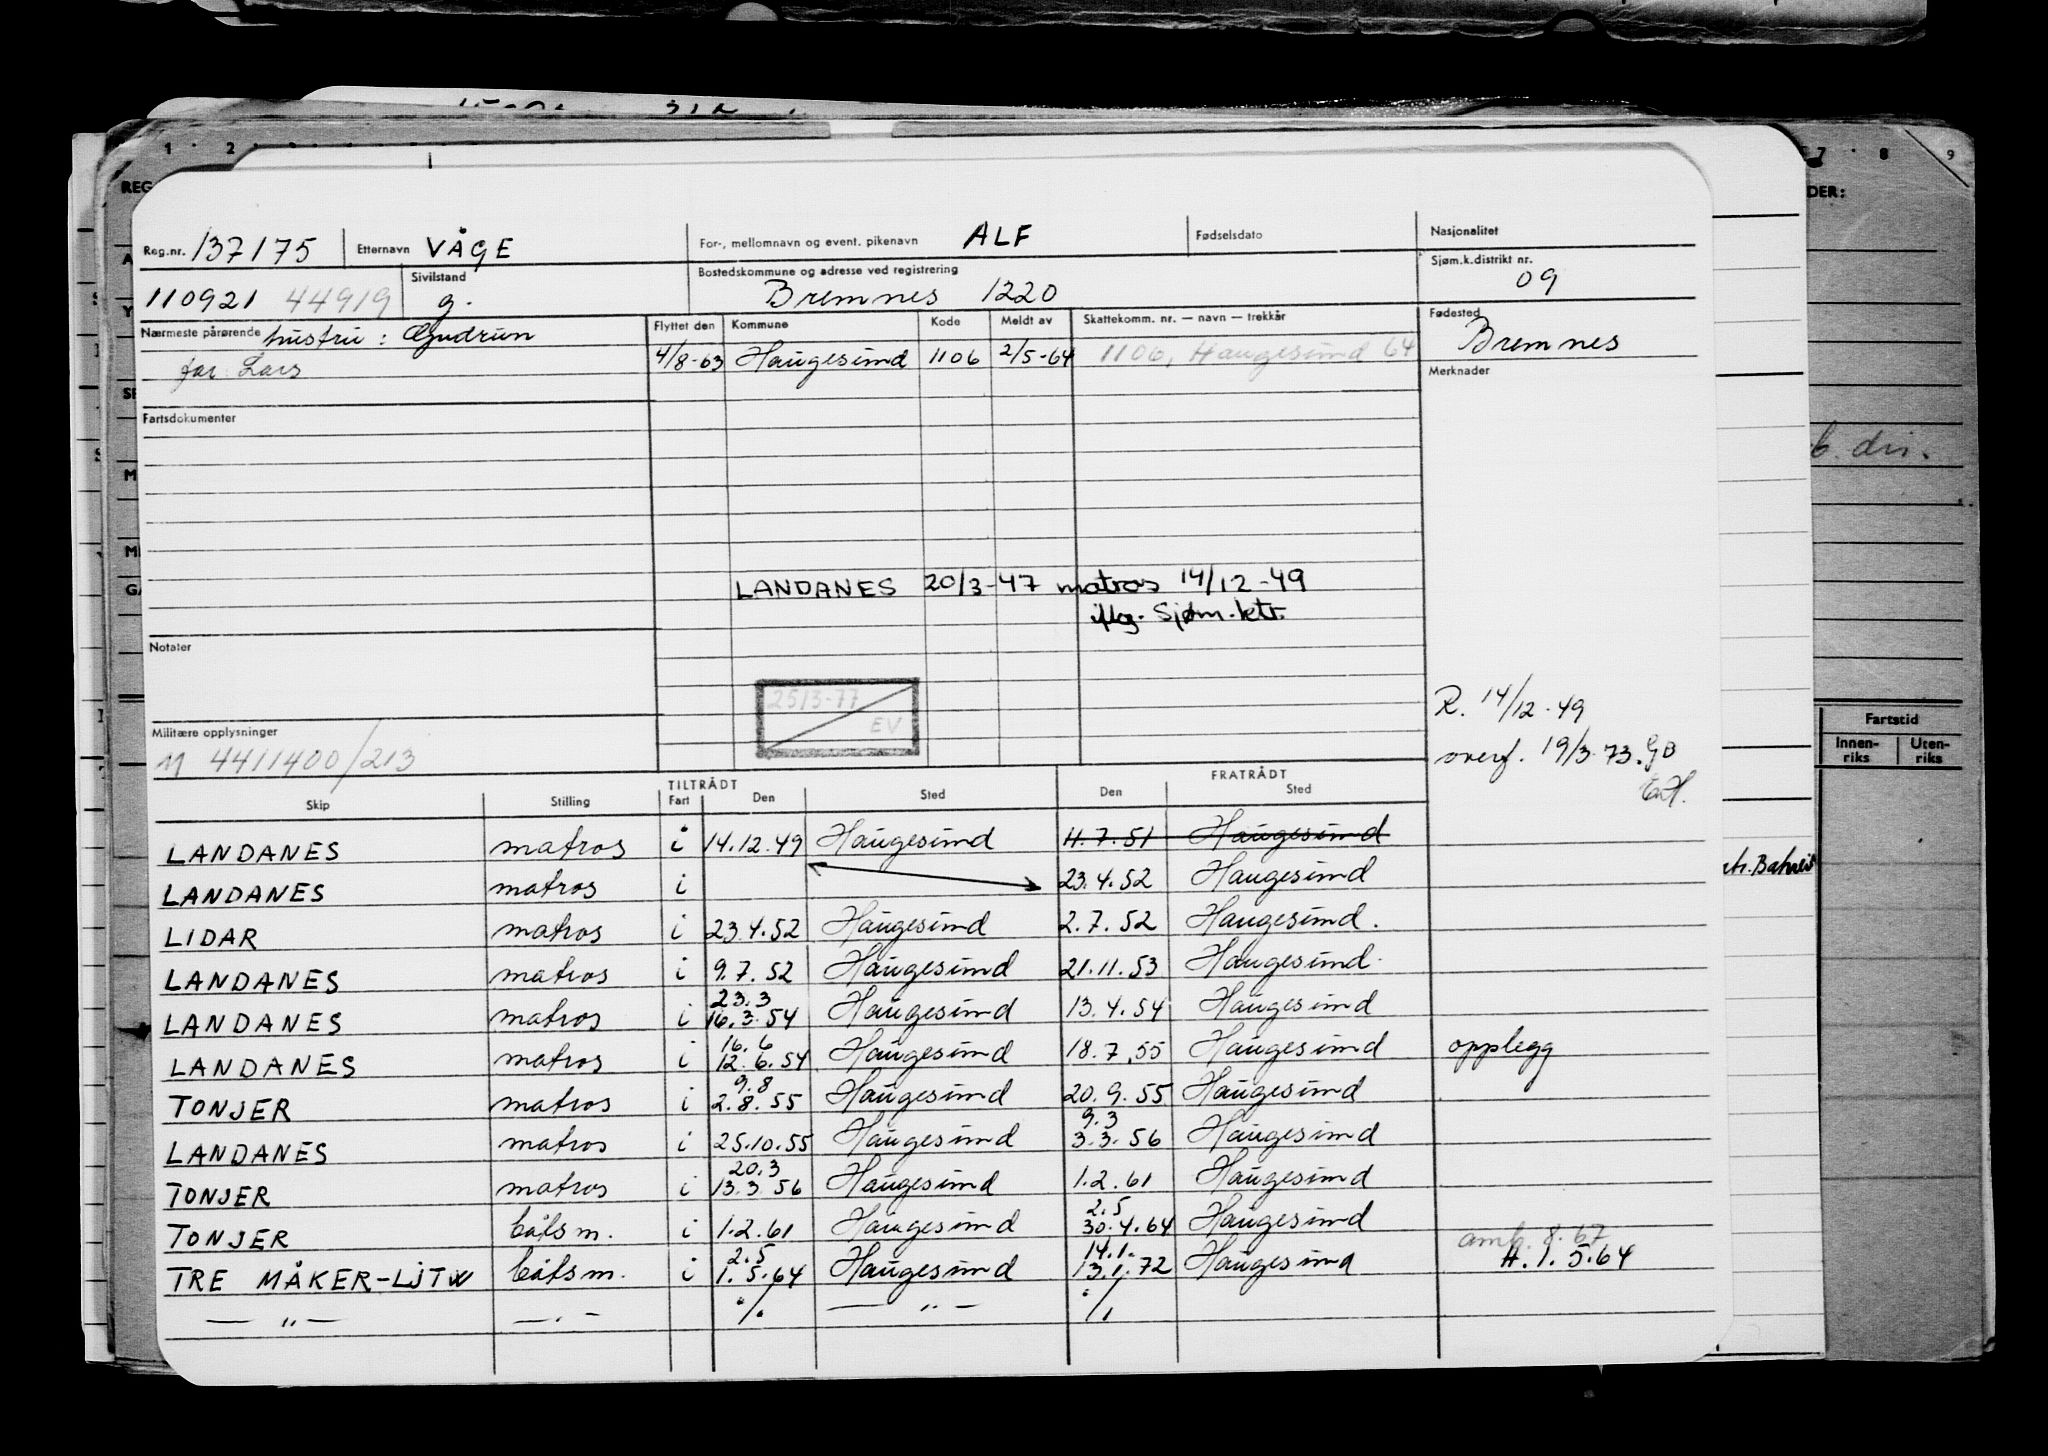 1 · 2
7 · 8 9
REG
DER:
Reg.nr. 137175 Etternavn VÅGE For-, mellomnavn og event. pikenavn ALF Fødselsdato Nasjonalitet
110921 44919 Sivilstand g. Bostedskommune og adresse ved registrering Bremnes 1220 Sjøm.k.distrikt nr. 09
Nærmeste pårørende hustru: Gudrun Flyttet den Kommune Kode Meldt av Skattekomm. nr. — navn — trekkår Fødested Bremnes
far: Lars 4/8-63 Haugesund 1106 2/5-64 1106, Haugesund 64
Merknader
Fartsdokumenter
b. dri.
LANDANES 20/3-47 matros 14/12-49
iflg. Sjøm.ktr.
Notater
25/3-77
EV
R. 14/12-49
Militære opplysninger
M 4411400/213
overf. 19/3-73. GB
Fartstid
Innen-riks Uten-riks
TILTRÅDT FRATRÅDT
Skip Stilling Fart Den Sted Den Sted
LANDANES matros i 14.12.49 Haugesund 4.7.51 Haugesund
LANDANES matros i 23.4.52 Haugesund
LIDAR matros i 23.4.52 Haugesund 2.7.52 Haugesund.
LANDANES matros i 9.7.52 Haugesund 21.11.53 Haugesund
23.3
LANDANES matros i 16.3.54 Haugesund 13.4.54 Haugesund
16.6
LANDANES matros i 12.6.54 Haugesund 18.7.55 Haugesund opplegg
9.8
TONJER matros i 2.8.55 Haugesund 20.9.55 Haugesund
9.3
LANDANES matros i 25.10.55 Haugesund 3.3.56 Haugesund
20.3
TONJER matros i 13.3.56 Haugesund 1.2.61 Haugesund
2.5
TONJER båtsm. i 1.2.61 Haugesund 30.4.64 Haugesund amb. 8.67
2.5 14.1.
TRE MÅKER-LJTW båtsm. i 1.5.64 Haugesund 13.1.72 Haugesund H. 1.5.64
— „ — — . — ·/. — „ — ·/.